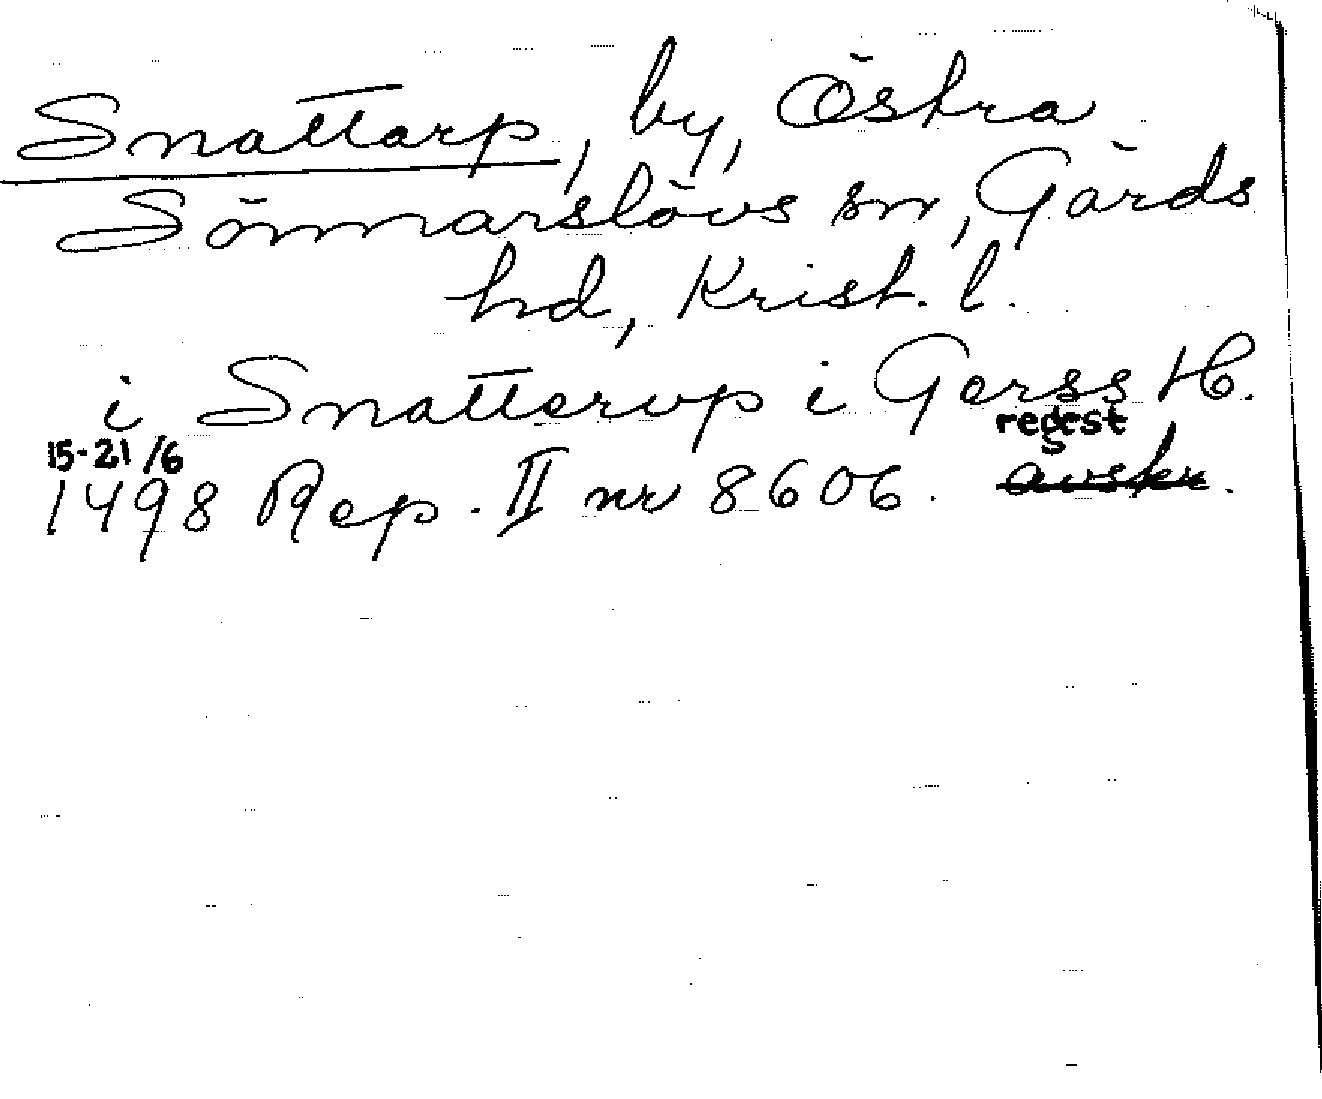 Snattarp, by, Östra
Sönnarslövs sn, Gärds
hd, Krist. l.
i Snatterup i Gerss H.
regest
15-21/6
1498 Rep. II nr 8606. avskr.